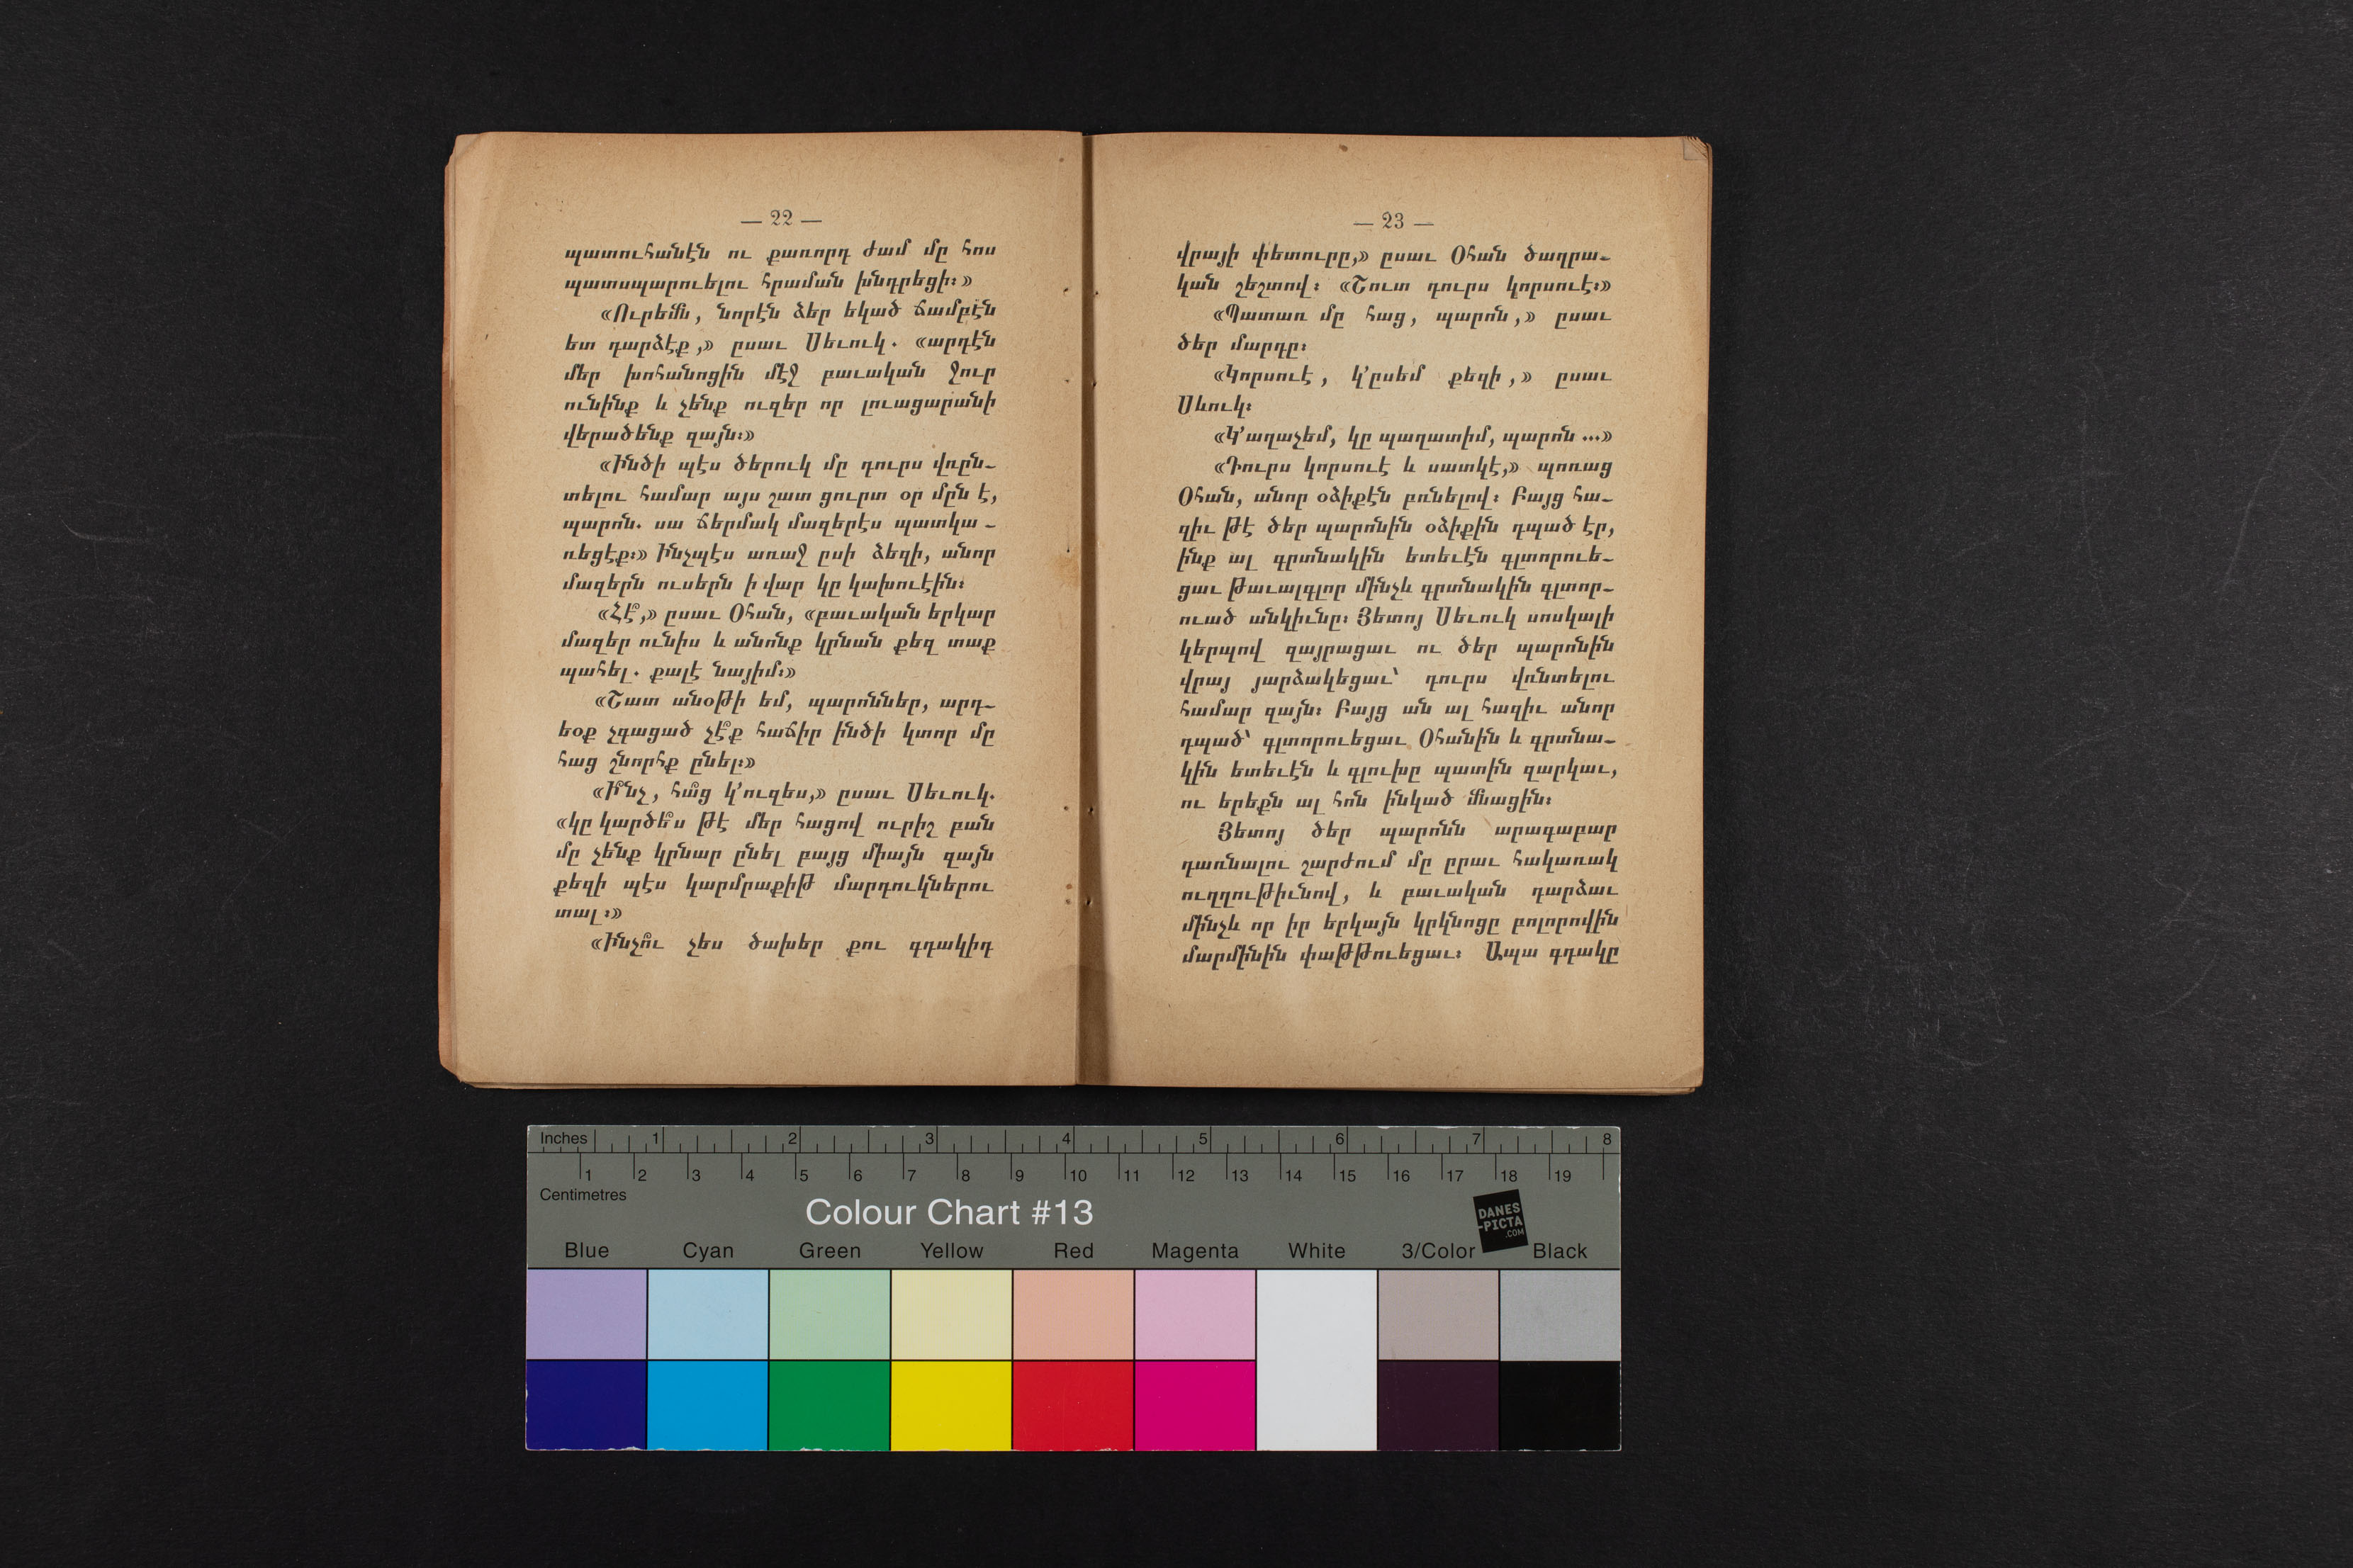 — 22 —
պատուհանէն ու քառորդ ժամ մը հոս
պատսպարուելու հրաման խնդրեցի։»
«Ուրեմն, նորէն ձեր եկած ճամբէն
ետ դարձէք,» ըսաւ Սեւուկ. «արդէն
մեր խոհանոցին մէջ բաւական ջուր
ունինք և չենք ուզեր որ լուացարանի
վերածենք զայն։»
«Ինծի պէս ծերուկ մը դուրս վռըն-
տելու համար այս շատ ցուրտ օր մըն է,
պարոն. սա ճերմակ մազերէս պատկա-
ռեցէք։» Ինչպէս առաջ ըսի ձեզի, անոր
մազերն ուսերն ի վար կը կախուէին։
«Հէ՜,» ըսաւ Օհան, «բաւական երկար
մազեր ունիս և անոնք կրնան քեզ տաք
պահել. քալէ նայիմ։»
«Շատ անօթի եմ, պարոններ, արդ-
եօք չգացած չէ՞ք հաճիր ինծի կտոր մը
հաց շնորհք ընել։»
«Ի՞նչ, հա՞ց կ՚ուզես,» ըսաւ Սեւուկ.
«կը կարծե՞ս թէ մեր հացով ուրիշ բան
մը չենք կրնար ընել բայց միայն զայն
քեզի պէս կարմրաքիթ մարդուկներու
տալ։»
«Ինչո՞ւ չես ծախեր քու գդակիդ
— 23 —
վրայի փետուրը,» ըսաւ Օհան ծաղրա-
կան շեշտով։ «Շուտ դուրս կորսուէ։»
«Պատառ մը հաց, պարոն,» ըսաւ
ծեր մարդը։
«Կորսուէ, կ՚ըսեմ քեզի,» ըսաւ
Սևուկ։
«Կ՚աղաչեմ, կը պաղատիմ, պարոն ...»
«Դուրս կորսուէ և սատկէ,» պոռաց
Օհան, անոր օձիքէն բռնելով։ Բայց հա-
զիւ թէ ծեր պարոնին օձիքին դպած էր,
ինք ալ գրտնակին ետեւէն գլտորուե-
ցաւ թաւալգլոր մինչև գրտնակին գլտոր-
ուած անկիւնը։ Յետոյ Սեւուկ սոսկալի
կերպով զայրացաւ ու ծեր պարոնին
վրայ յարձակեցաւ՝ դուրս վռնտելու
համար զայն։ Բայց ան ալ հազիւ անոր
դպած՝ գլտորուեցաւ Օհանին և գրտնա-
կին ետեւէն և գլուխը պատին զարկաւ,
ու երեքն ալ հոն ինկած մնացին։
Յետոյ ծեր պարոնն արագաբար
դառնալու շարժում մը ըրաւ հակառակ
ուղղութիւնով, և բաւական դարձաւ
մինչև որ իր երկայն կրկնոցը բոլորովին
մարմինին փաթթուեցաւ։ Ապա գդակը
Inches 1 2 3 4 5 6 7 8
1 2 3 4 5 6 7 8 9 10 11 12 13 14 15 16 17 18 19
Centimetres
Colour Chart #13
DANES
-PICTA
.COM
Blue Cyan Green Yellow Red Magenta White 3/Color Black